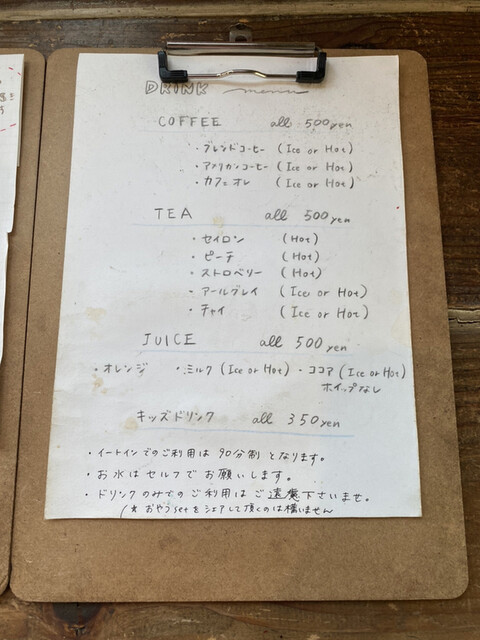 DRINK menu
COFFEE all 500yen
・ブレンドコーヒー (Ice or Hot)
・アメリカンコーヒー (Ice or Hot)
・カフェオレ (Ice or Hot)
TEA all 500yen
・セイロン (Hot)
・ピーチ (Hot)
・ストロベリー (Hot)
・アールグレイ (Ice or Hot)
・チャイ (Ice or Hot)
JUICE all 500yen
・オレンジ ・ミルク (Ice or Hot) ・ココア (Ice or Hot)
ホイップなし
キッズドリンク all 350yen
・イートインでのご利用は90分制となります。
・お水はセルフでお願いします。
・ドリンクのみでのご利用はご遠慮下さいませ。
(* おやつsetをシェアして頂くのは構いません